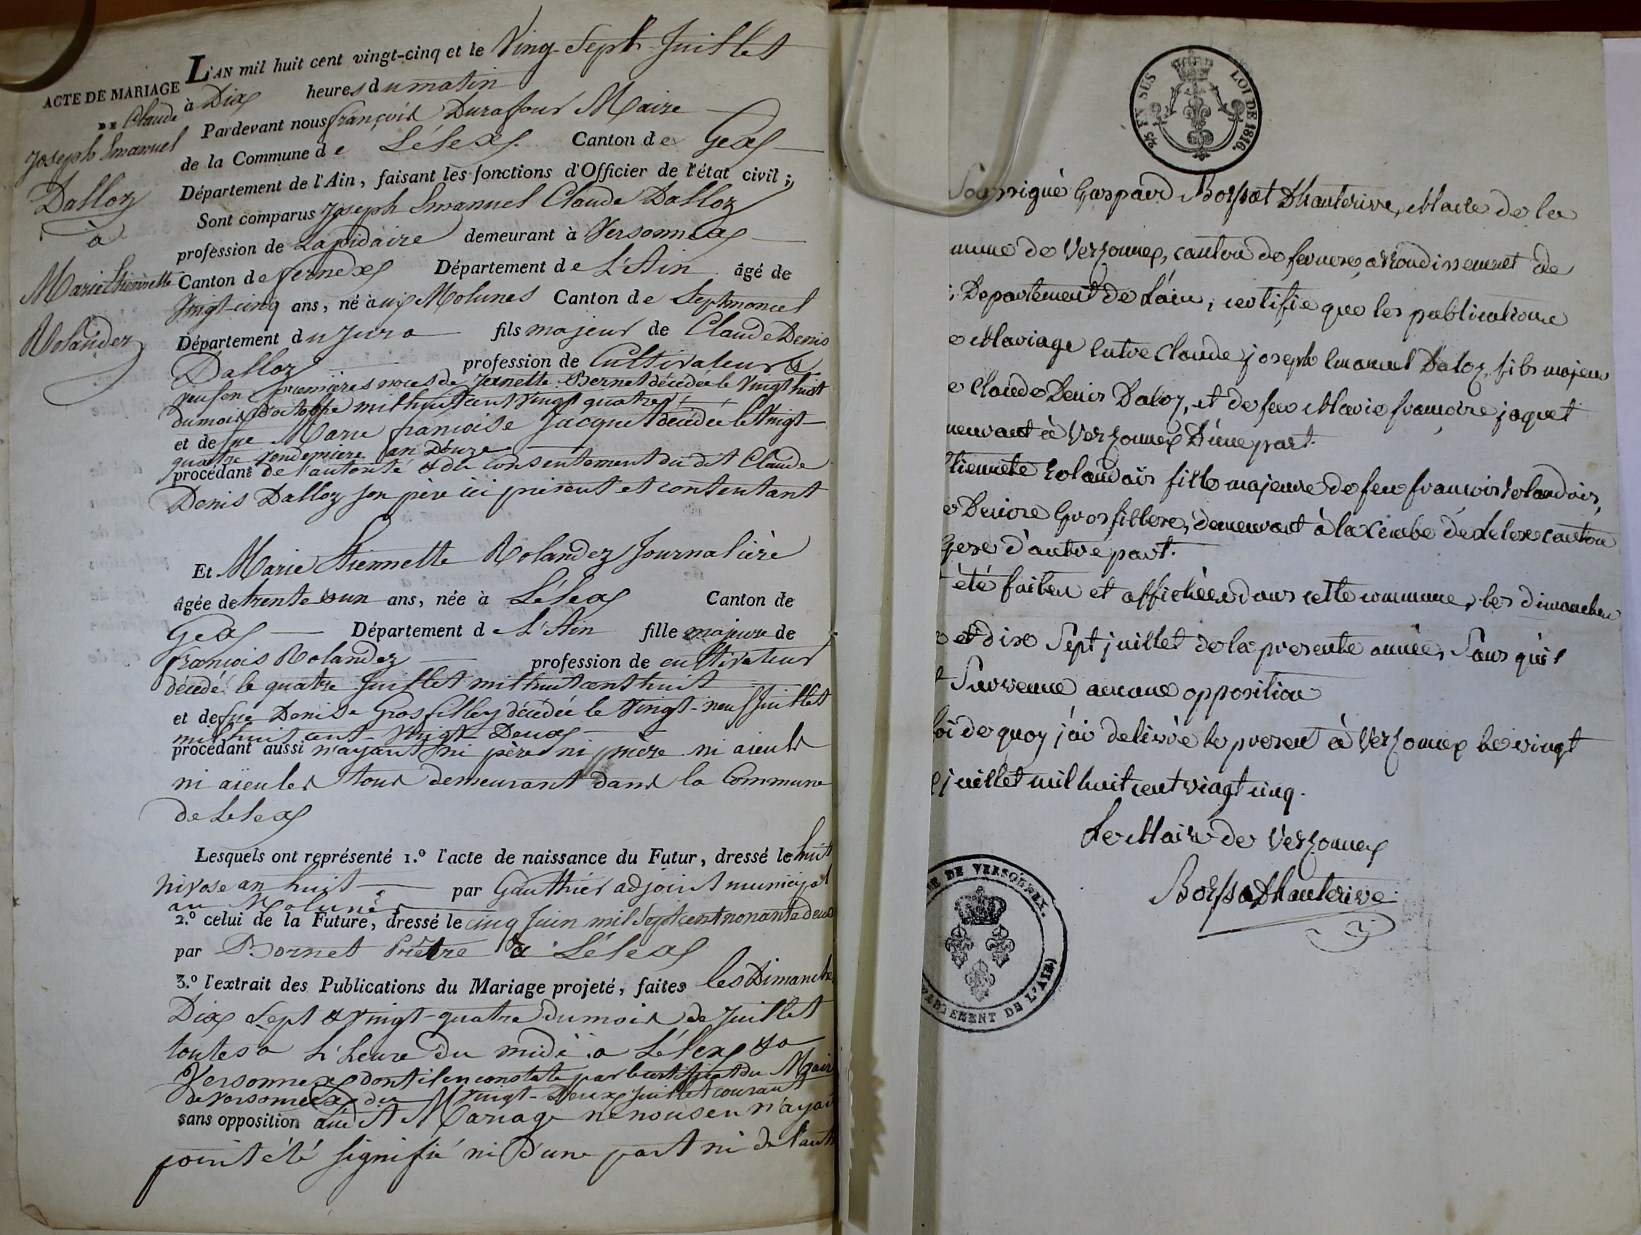 ACTE DE MARIAGE
DE Claude
Joseph Emanuel
Dalloz
à
Marie Etiennette
Rolandez
L'AN mil huit cent vingt-cinq et le Ving-Sept Juillet
à Dix heures du matin
Pardevant nous françois Durafour Maire
de la Commune de Lélex Canton de Gex
Département de l'Ain, faisant les fonctions d'Officier de l'état civil;
Sont comparus Joseph Emanuel Claude Dalloz
profession de Lapidaire demeurant à Versonnex
Canton de fernex Département de L'Ain âgé de
Vingt-cinq ans, né aux Molunes Canton de Septmoncel
Département du Jura fils majeur de Claude Denis
Dalloz profession de Cultivateur &
veuf en premières noces de Jeanette Bernet décédée le Vingt huit
du mois D'octobre mil huit cent vingt quatre
et de fue Marie françoise Jacquet décédée le Vingt
quatre Vendemiere an Douze
procédant de l'autorité & du consentement du dit Claude
Denis Dalloz son père ici présent et contentant
Et Marie Etiennette Rolandez Journalière
âgée de trente & un ans, née à Lélex Canton de
Gex Département d L'Ain fille majeure de
françois Rolandez profession de cultivateur
décédé le quatre Juillet mil huit cent huit
et de fue Denise Grosfilley décédée le Vingt-neuf Juillet
mil huit cent Vingt Deux
procédant aussi n'ayant ni père ni mère ni aieuls
ni aieules tous demeurant dans la Commune
de Lelex
Lesquels ont représenté 1.º l'acte de naissance du Futur, dressé le huit
nivose an huit par Gauthier adjoint municipal
au Molunes
2.º celui de la Future, dressé le cinq Juin mil Sept cent nonante deux
par Bornet Prêtre à Lélex
3.º l'extrait des Publications du Mariage projeté, faites les Dimanche
Dix Sept & Vingt-quatre du mois de Juillet
toutes a L'heure du midi a Lélex & a
Versonnex dont il en constate par le certificat du Maire
de Versonnex du Vingt-Deux Juillet courant
sans opposition audit Mariage ne nous en n'ayant
point été signifié ni D'une part ni de l'autre
25 EN SUS LOI DE 1816.
Soussigné Gaspard Borssat Dhauterive, Maire de la
mune de Versonnex, canton de fernex, arrondissement de
; Departement de Lain, certifie que les publications
e Mariage entre Claude joseph Emanuel Daloz, fils majeur
e Claude Denis Daloz, et de feu Marie françoise jaquet
meurant à Versonnex D'une part.
tiennete Rolandois fille majeure de feu françois Rolandois,
e Denise Grosfillere, demeurant à la Combe de Lelex canton
gex d'autre part.
été faites et affichées dans cette commune, les dimanches
et dix Sept juillet de la presente année, Sans qu'il
Survenue aucune opposition
foi de quoy j'ai delivré le present à Versonnex le vingt
juillet mil huit cent vingt cinq.
Le Maire de Versonnex
Borssat Dhauterive
DE VERSONNEX.
PARTEMENT DE L'AIN)